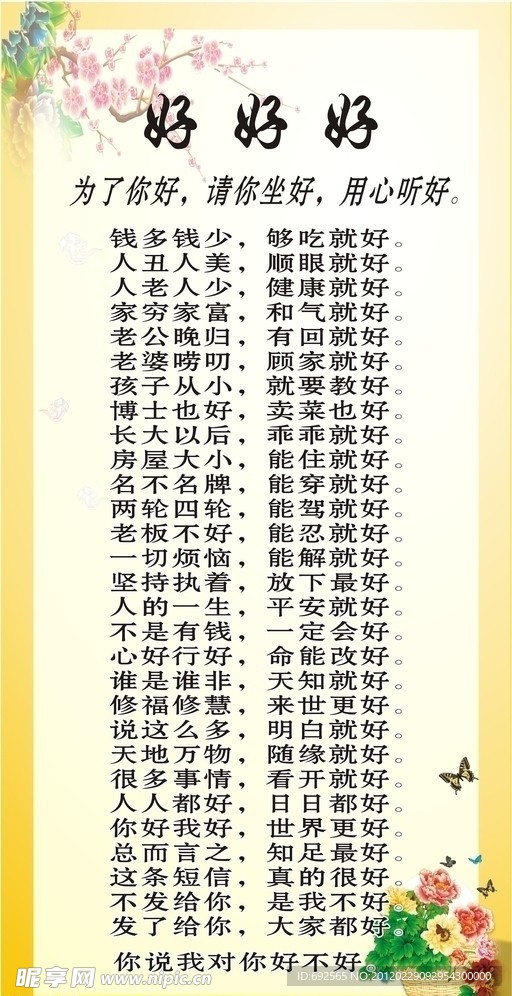 好 好 好
为了你好，请你坐好，用心听好。
钱多钱少，够吃就好。
人丑人美，顺眼就好。
人老人少，健康就好。
家穷家富，和气就好。
老公晚归，有回就好。
老婆唠叨，顾家就好。
孩子从小，就要教好。
博士也好，卖菜也好。
长大以后，乖乖就好。
房屋大小，能住就好。
名不名牌，能穿就好。
两轮四轮，能驾就好。
老板不好，能忍就好。
一切烦恼，能解就好。
坚持执着，放下最好。
人的一生，平安就好。
不是有钱，一定会好。
心好行好，命能改好。
谁是谁非，天知就好。
修福修慧，来世更好。
说这么多，明白就好。
天地万物，随缘就好。
很多事情，看开就好。
人人都好，日日都好。
你好我好，世界更好。
总而言之，知足最好。
这条短信，真的很好。
不发给你，是我不好。
发了给你，大家都好。
你说我对你好不好。
昵享网 www.nipic.cn
ID:692565 NO:20120229092954300000